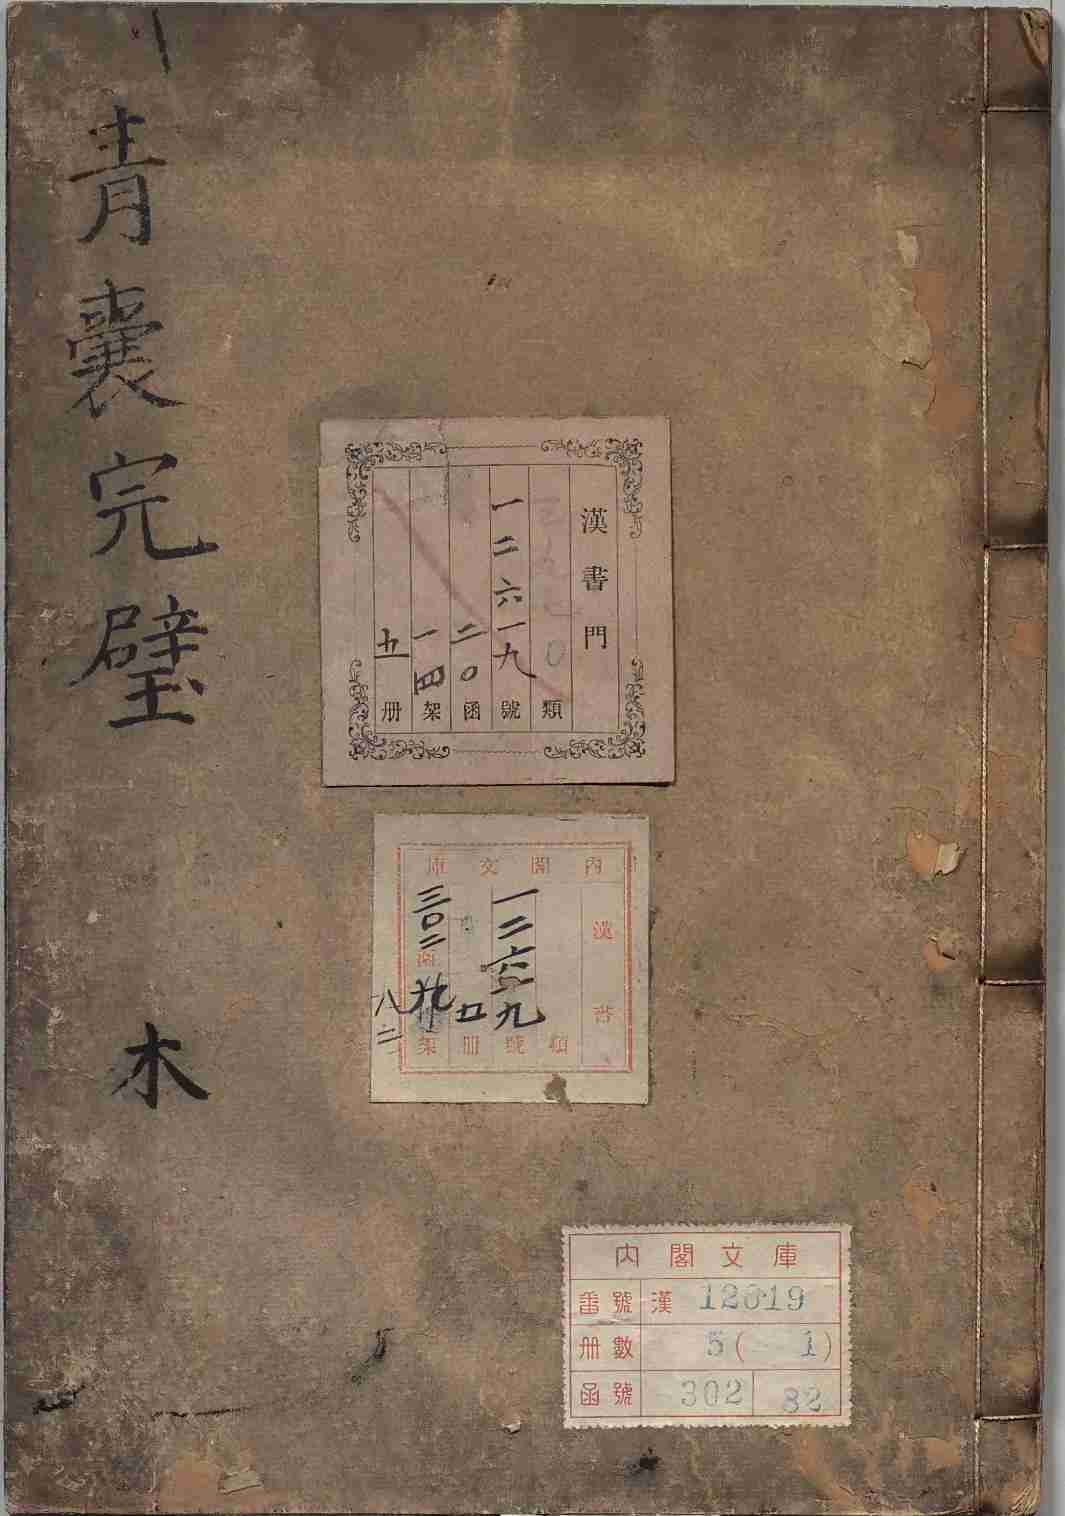 青囊完璧 木
漢書門
類
一二六一九號
二〇函
一四架
五册
內閣文庫
漢書
類
一二六一九號
五册
三〇二函
架
八二
內閣文庫
番號 漢 12619
册數 5(1)
函號 302 82